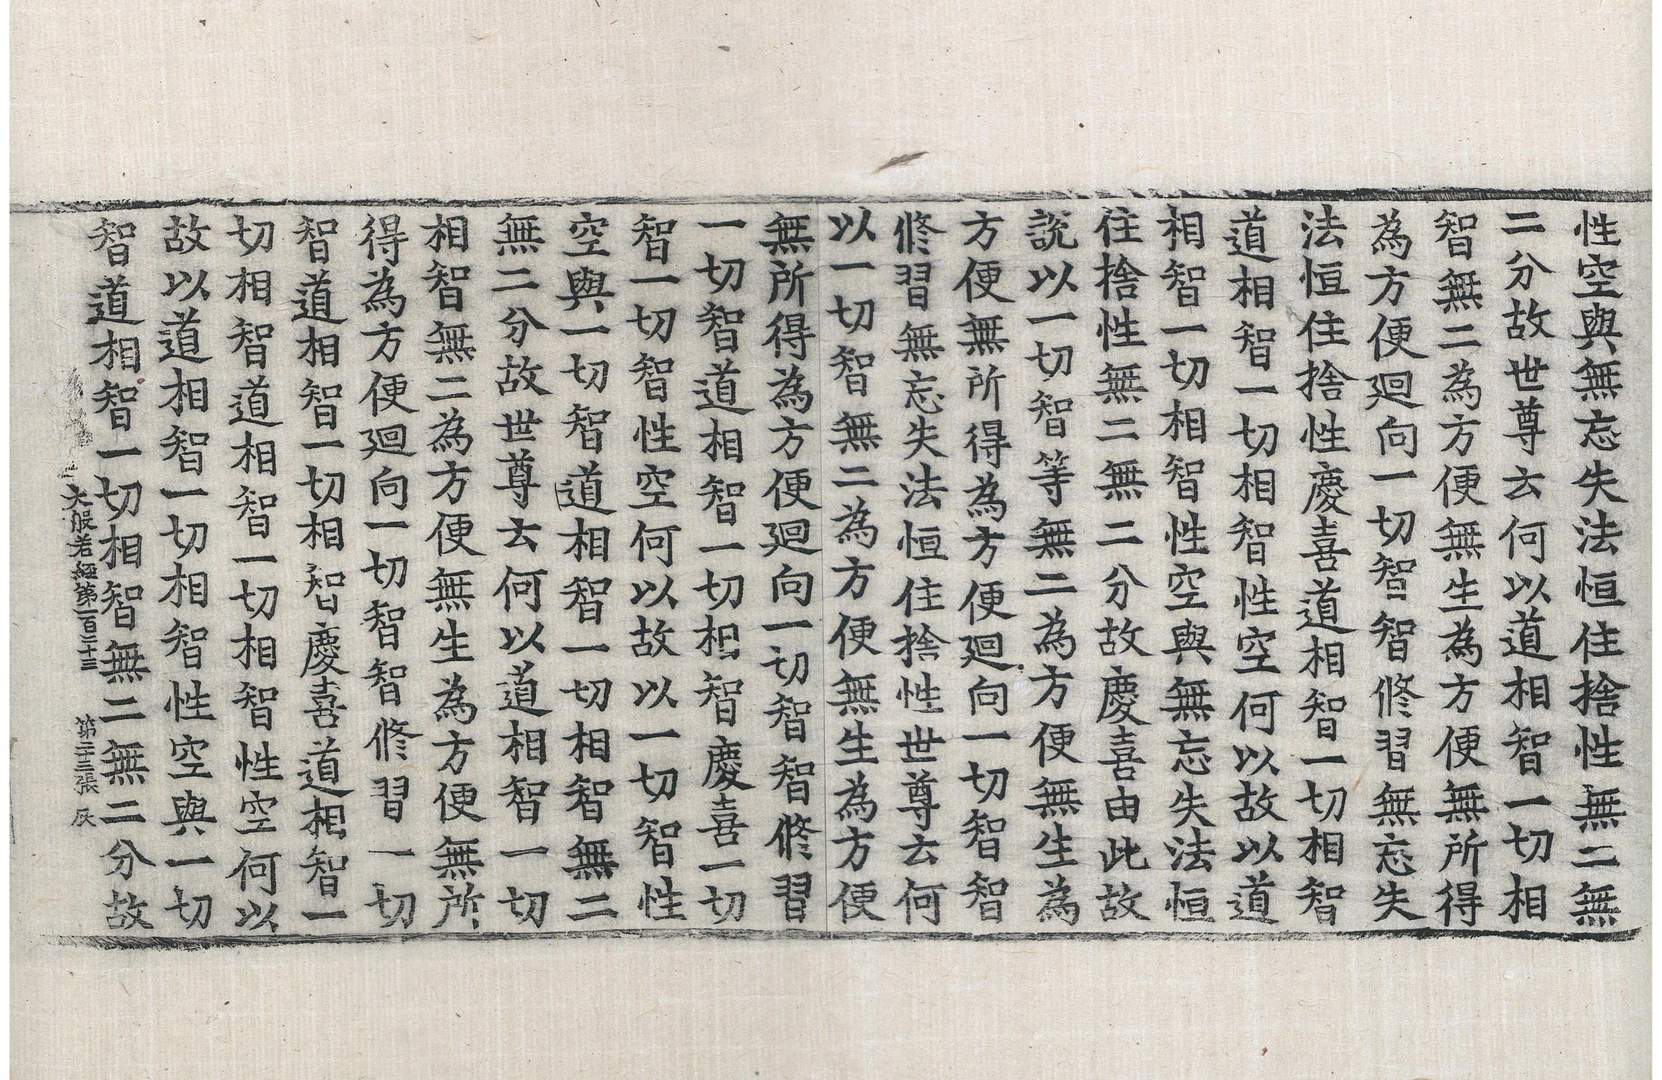 性空與無忘失法恒住捨性無二無
二分故世尊云何以道相智一切相
智無二為方便無生為方便無所得
為方便迴向一切智智修習無忘失
法恒住捨性慶喜道相智一切相智
道相智一切相智性空何以故以道
相智一切相智性空與無忘失法恒
住捨性無二無二分故慶喜由此故
說以一切智等無二為方便無生為
方便無所得為方便迴向一切智智
修習無忘失法恒住捨性世尊云何
以一切智無二為方便無生為方便
無所得為方便迴向一切智智修習
一切智道相智一切相智慶喜一切
智一切智性空何以故以一切智性
空與一切智道相智一切相智無二
無二分故世尊云何以道相智一切
相智無二為方便無生為方便無所
得為方便迴向一切智智修習一切
智道相智一切相智慶喜道相智一
切相智道相智一切相智性空何以
故以道相智一切相智性空與一切
智道相智一切相智無二無二分故
大般若經第一百二十三 第二十三張 辰